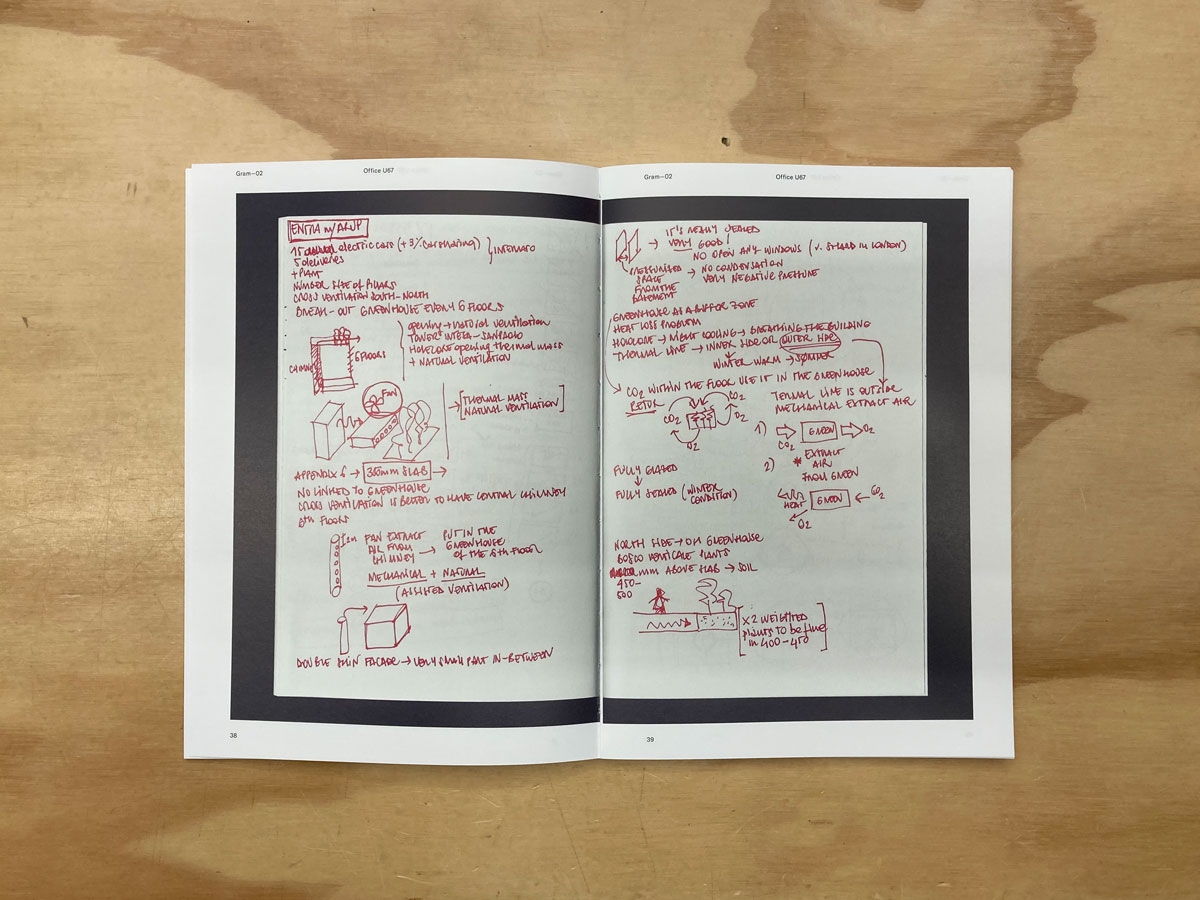 Gram—02
Office U67
W/ ARUP
electric cars (+ 3% car sharing)
5 deliveries
+ PLANT
NUMBER SIZE OF PILLARS
CROSS VENTILATION SOUTH-NORTH
BREAK-OUT GREENHOUSE EVERY 6 FLOORS
opening → natural ventilation
TOWER INTESA-SANPAOLO
opening thermal mass
+ NATURAL VENTILATION
6 FLOORS
FAN
→ [THERMAL MASS
NATURAL VENTILATION]
APPENDIX 6 → SLAB →
NO LINKED TO GREENHOUSE
CROSS VENTILATION IS BETTER TO HAVE CENTRAL CHIMNEY
6th FLOORS
FAN EXTRACT
AIR FROM
CHIMNEY
→ PUT IN THE
GREENHOUSE
OF THE 6th FLOOR
MECHANICAL + NATURAL
(ASSISTED VENTILATION)
DOUBLE SKIN FACADE → VERY SMALL PART IN-BETWEEN
38
Gram—02
Office U67
→ IT'S REALLY SEALED
VERY GOOD!
NO OPEN ANY WINDOWS (v. SHARD IN LONDON)
PRESSURIZED
SPACE
FROM THE
BASEMENT
→ NO CONDENSATION
VERY NEGATIVE PRESSURE
GREENHOUSE AS A BUFFER ZONE
HEAT LOSS PROBLEM
→ NIGHT COOLING → BREATHING THE BUILDING
THERMAL LINE → INNER SIDE OR OUTER SIDE
WINTER WARM → SUMMER
CO2 WITHIN THE FLOOR USE IT IN THE GREENHOUSE
CO2
CO2
O2
O2
THERMAL LINE IS OUTSIDE
MECHANICAL EXTRACT AIR
1)
CO2
GREEN
O2
EXTRACT
AIR
FROM GREEN
2)
HEAT
GREEN
CO2
O2
FULLY GLAZED
FULLY SEALED (WINTER
CONDITION)
NORTH SIDE → GREENHOUSE
BOSCO VERTICALE PLANTS
mm ABOVE SLAB → SOIL
450-
500
[x2 WEIGHTED
plants to be fine
in 400-450]
39